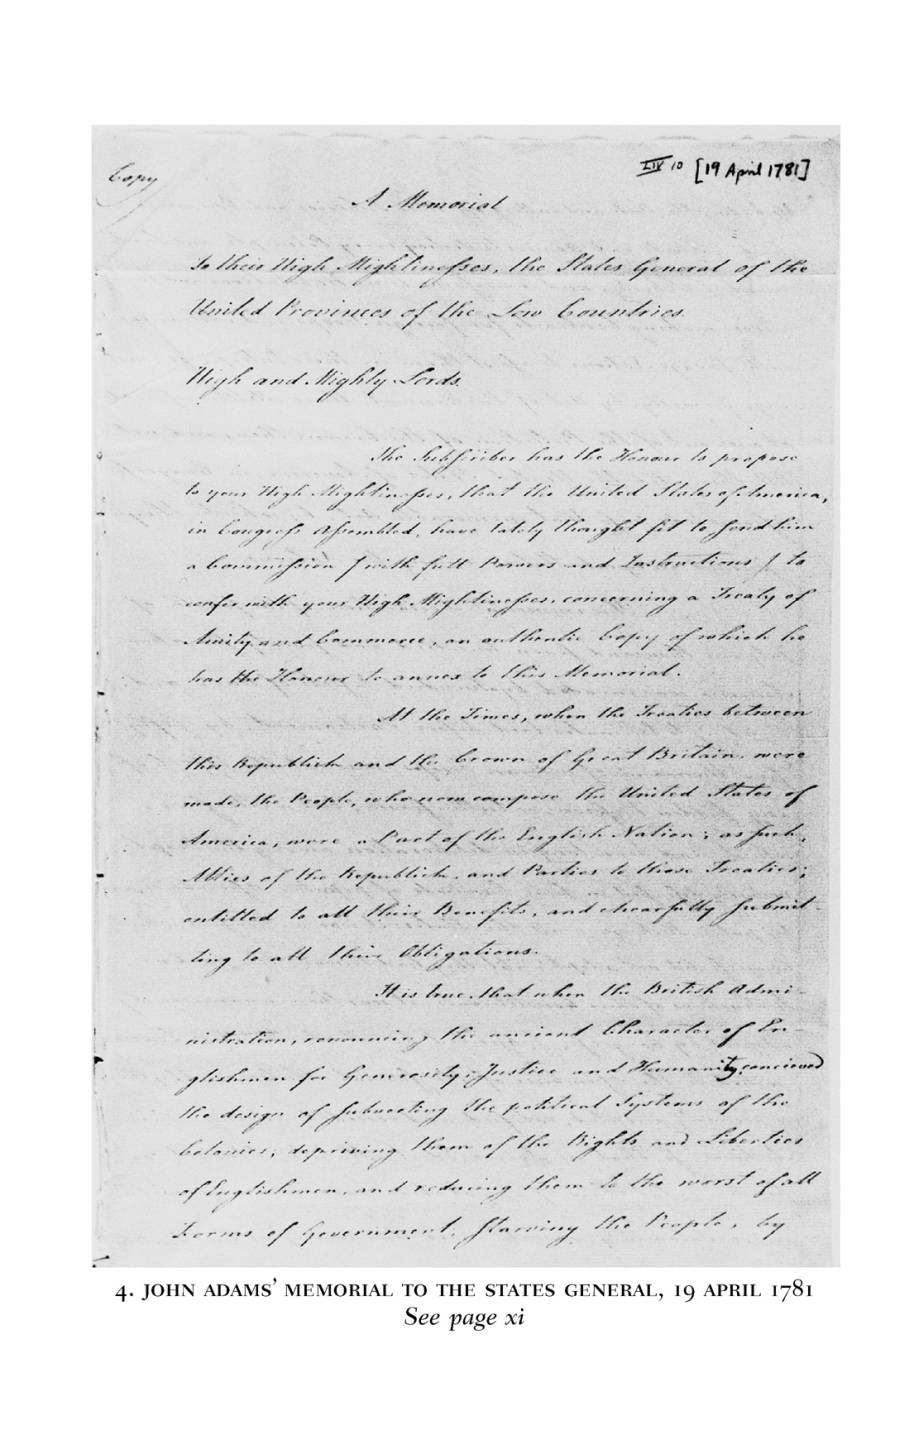 Copy
LIX 10 [19 April 1781]
A Memorial
To their High Mightinesses, the States General of the
United Provinces of the Low Countries.
High and Mighty Lords.
The Subscriber has the Honour to propose
to your High Mightinesses, that the United States of America,
in Congress Assembled, have lately thought fit to send him
a Commission (with full Powers and Instructions) to
confer with your High Mightinesses, concerning a Treaty of
Amity and Commerce, an authentic Copy of which he
has the Honour to annex to this Memorial.
At the Times, when the Treaties between
this Republick and the Crown of Great Britain, were
made, the People, who now compose the United States of
America, were a Part of the English Nation; as such,
Allies of the Republick, and Parties to those Treaties;
entitled to all their Benefits, and chearfully submit-
ting to all their Obligations.
It is true, that when the British Admi-
nistration, renouncing the ancient Character of En-
glishmen for Generosity, Justice and Humanity, concieved
the design of subverting the political Systems of the
Colonies; depriving them of the Rights and Liberties
of Englishmen, and reducing them to the worst of all
Forms of Government, starving the People, by
4. JOHN ADAMS’ MEMORIAL TO THE STATES GENERAL, 19 APRIL 1781
See page xi